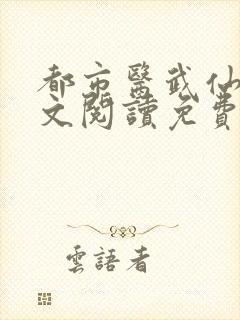 都市醫武仙
文閱讀免費
雲語者